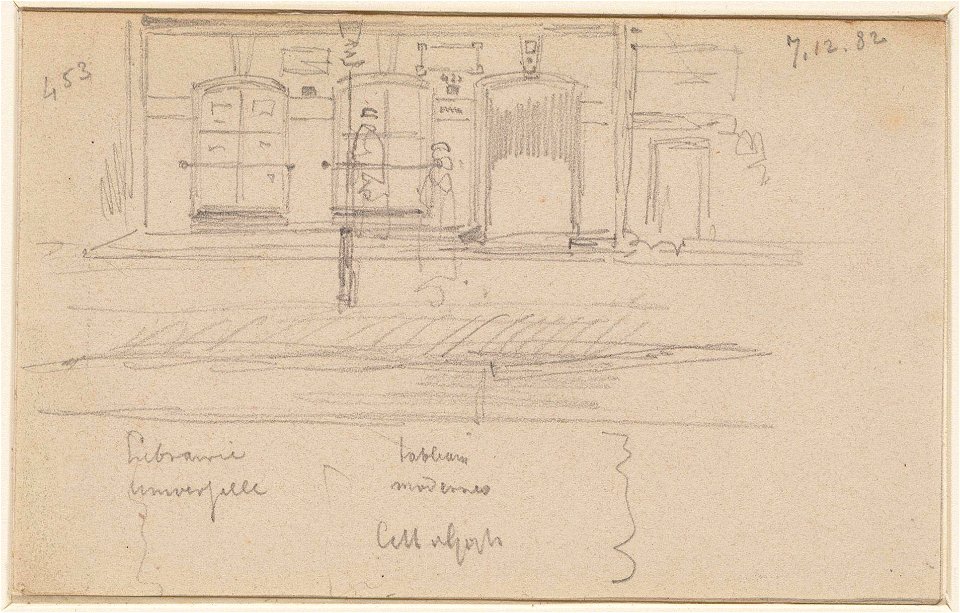 7.12.82
453
Librairie tableaux
Universelle modernes